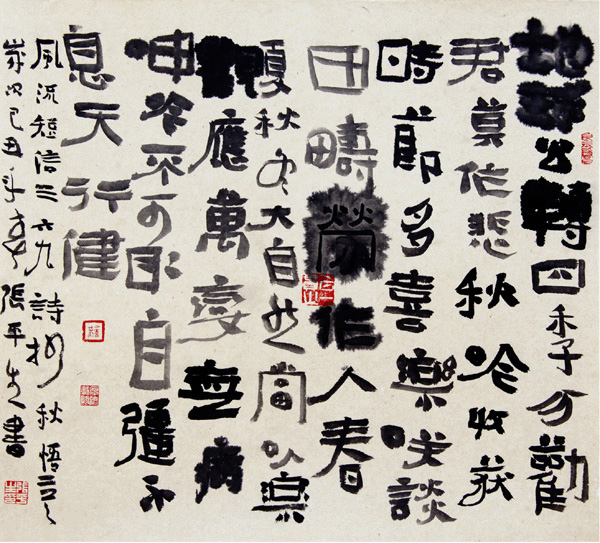 地球公轉四季分勸
君莫作悲秋吟收获
時節多喜樂咲談
田疇勞作人春
夏秋冬大自然當以樂
觀應萬變無病
呻吟不可取自彊不
息天行健
風流短信三六九詩抄秋悟
歲次己丑年春張平生書